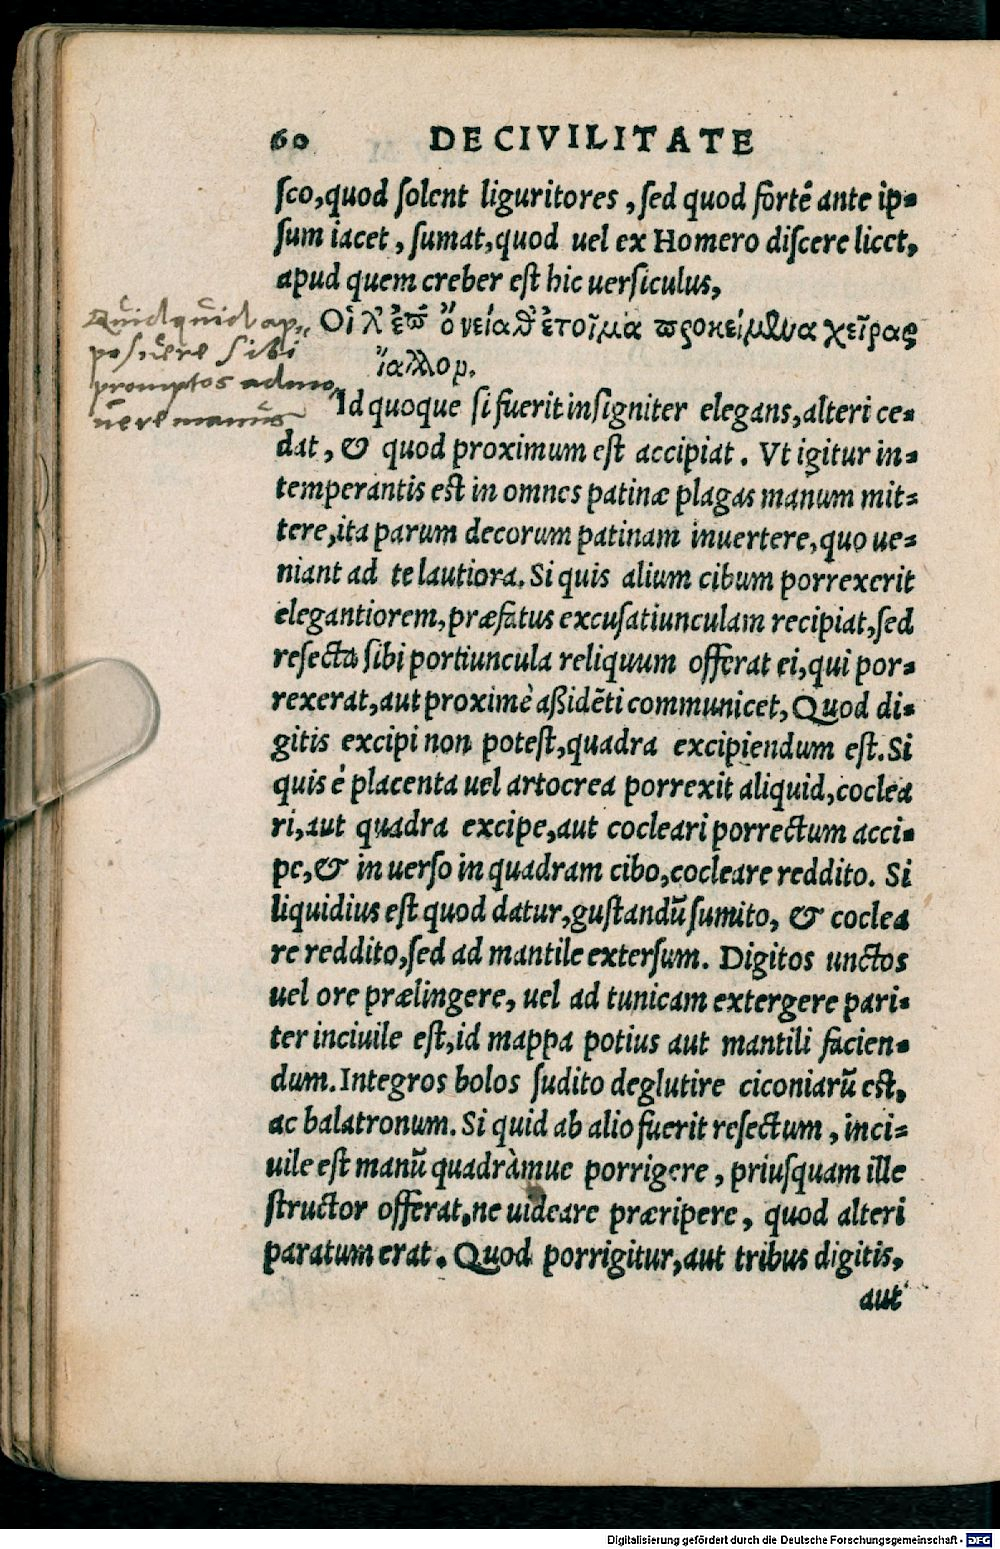 60 DE CIVILITATE
ſco,quod ſolent liguritores , ſed quod fortè ante ip-
ſum iacet , ſumat,quod uel ex Homero diſcere licet,
apud quem creber eſt hic uerſiculus,
Οἱ δ᾽ ἐπ᾽ ὀνείαθ᾽ ἑτοῖμα προκείμενα χεῖρας
ἴαλλον.
Quidquid ap-
posuere sibi
promptos admo
uere manus
Id quoque ſi fuerit inſigniter elegans,alteri ce-
dat, & quod proximum eſt accipiat. Vt igitur in-
temperantis eſt in omnes patinæ plagas manum mit-
tere,ita parum decorum patinam inuertere,quo ue-
niant ad te lautiora. Si quis alium cibum porrexerit
elegantiorem,præfatus excuſatiunculam recipiat,ſed
reſecta ſibi portiuncula reliquum offerat ei,qui por-
rexerat,aut proximè aßidēti communicet, Quod di-
gitis excipi non poteſt,quadra excipiendum eſt. Si
quis è placenta uel artocrea porrexit aliquid,coclea
ri,aut quadra excipe,aut cocleari porrectum acci-
pe,& in uerſo in quadram cibo,cocleare reddito. Si
liquidius eſt quod datur,guſtandū ſumito, & coclea
re reddito,ſed ad mantile exterſum. Digitos unctos
uel ore prælingere, uel ad tunicam extergere pari-
ter inciuile eſt,id mappa potius aut mantili facien-
dum. Integros bolos ſudito deglutire ciconiarū eſt,
ac balatronum. Si quid ab alio fuerit reſectum , inci-
uile eſt manū quadràmue porrigere , priuſquam ille
ſtructor offerat,ne uideare præripere, quod alteri
paratum erat. Quod porrigitur,aut tribus digitis,
aut
Digitalisierung gefördert durch die Deutsche Forschungsgemeinschaft - DFG